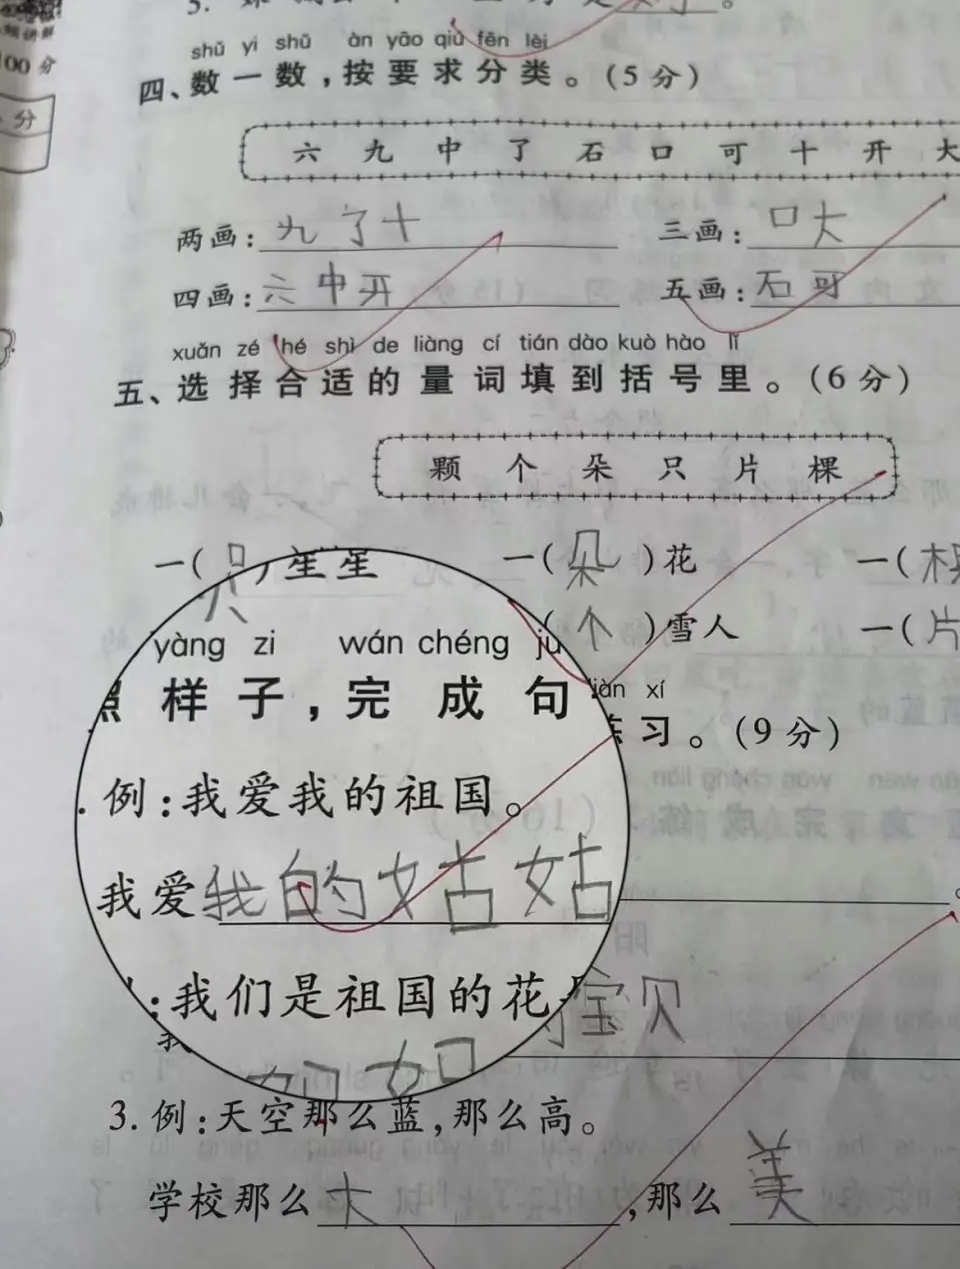 00分
分
shǔ yi shǔ àn yāo qiú fēn lèi
四、数一数，按要求分类。（5分）
六 九 中 了 石 口 可 十 开 大
两画：九了十 三画：口大
四画：六中开 五画：石可
xuǎn zé hé shì de liàng cí tián dào kuò hào lǐ
五、选择合适的量词填到括号里。（6分）
颗 个 朵 只 片 棵
一（只）星星 一（朵）花 一（棵
（个）雪人 一（片
yàng zi wán chéng jù liàn xí
照样子，完成句 练习。（9分）
例：我爱我的祖国。
我爱我的姑姑。
：我们是祖国的花
宝贝
3. 例：天空那么蓝，那么高。
学校那么大，那么美